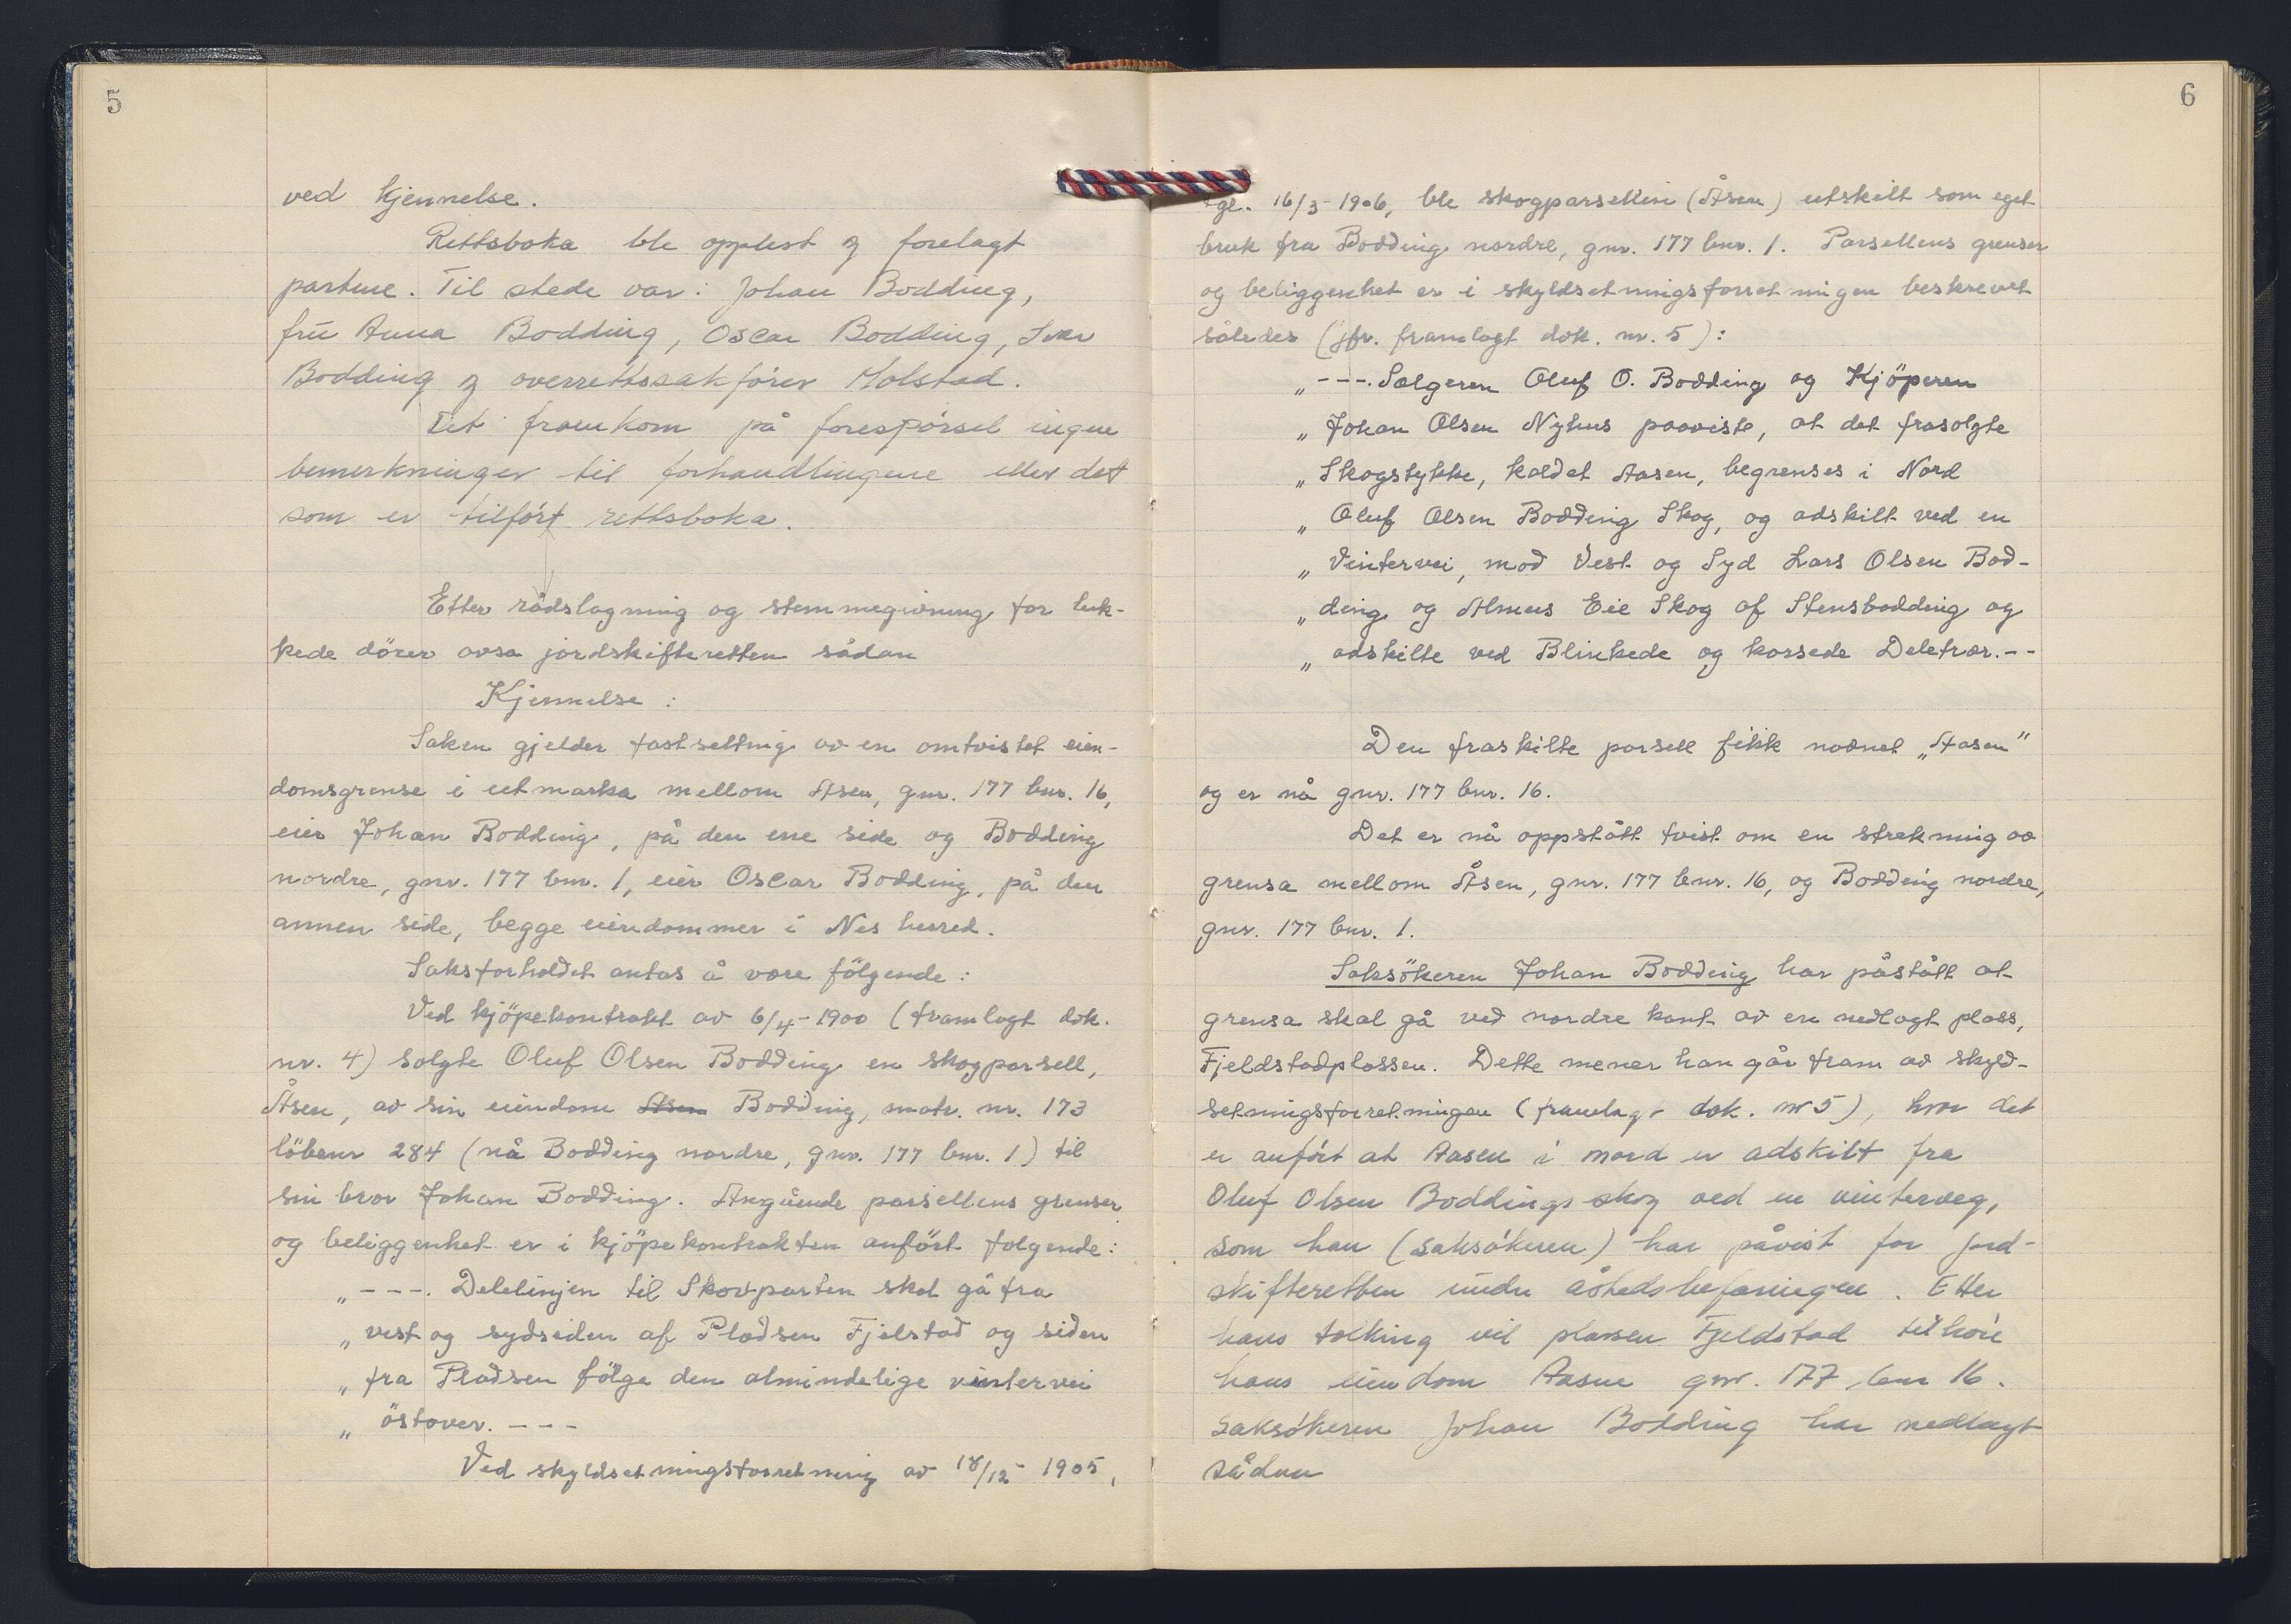 5
ved kjennelse.
Rettsboka ble opplest og forelagt
partene. Til stede var: Johan Bodding,
fru Anna Bodding, Oscar Bodding, Ivar
Bodding og overrettssakfører Molstad.
Det framkom på forespørsel ingen
bemerkninger til forhandlingene eller det
som er tilført rettsboka.
Etter rådslagning og stemmegivning for luk-
kede dörer avsa jordskifteretten sådan
Kjennelse:
Saken gjelder fastsetting av en omtvistet eien-
domsgrense i utmarka mellom Åsen, gnr. 177 bnr. 16,
eier Johan Bodding, på den ene side og Bodding
nordre, gnr. 177 bnr. 1, eier Oscar Bodding, på den
annen side, begge eiendommer i Nes herred.
Saksforholdet antas å være fölgende:
Ved kjöpekontrakt av 6/4-1900 (framlagt dok.
nr. 4) solgte Oluf Olsen Bodding en skogparsell,
Åsen, av sin eiendom Åsen Bodding, matr. nr. 173
löbenr 284 (nå Bodding nordre, gnr. 177 bnr. 1) til
sin bror Johan Bodding. Angående parsellens grenser
og beliggenhet er i kjöpekontrakten anfört følgende:
„---. Delelinjen til Skovparten skal gå fra
„ vest og sydsiden af Pladsen Fjelstad og siden
„ fra Pladsen fölge den almindelige vintervei
„ östover. ---
Ved skyldsetningsforretning av 18/12-1905,
6
tgl. 16/3-1906, ble skogparsellen (Åsen) utskilt som eget
bruk fra Bodding nordre, gnr. 177 bnr. 1. Parsellens grenser
og beliggenhet er i skyldsetningsforretningen beskrevet
således (jfr. framlagt dok. nr. 5):
„---. Sælgeren Oluf O. Bodding og Kjöperen
„ Johan Olsen Nyhus paaviste, at det frasolgte
„ Skogstykke, kaldet Aasen, begrenses i Nord
„ Oluf Olsen Bodding Skog, og adskilt ved en
„ Vintervei, mod Vest og Syd Lars Olsen Bod-
„ ding og Almens Eie Skog af Stensbodding og
„ adskilte ved Blinkede og korsede Deletrær.--
Den fraskilte parsell fikk navnet „Aasen"
og er nå gnr. 177 bnr. 16.
Det er nå oppstått tvist om en strekning av
grensa mellom Åsen, gnr. 177 bnr. 16, og Bodding nordre,
gnr. 177 bnr. 1.
Saksökeren Johan Bodding har påstått at
grensa skal gå ved nordre kant av en nedlagt plass,
Fjeldstadplassen. Dette mener han går fram av skyld-
setningsforretningen (framlagt dok. nr 5), hvor det
er anført at Aasen i nord er adskilt fra
Oluf Olsen Boddings skog ved en vinterveg,
som han (saksøkeren) har påvist for jord-
skifteretten under åstedsbefaringen. Etter
hans tolking vil plassen Fjeldstad tilhøre
hans eiendom Aasen gnr. 177, bnr 16.
Saksøkeren Johan Bodding har nedlagt
sådan